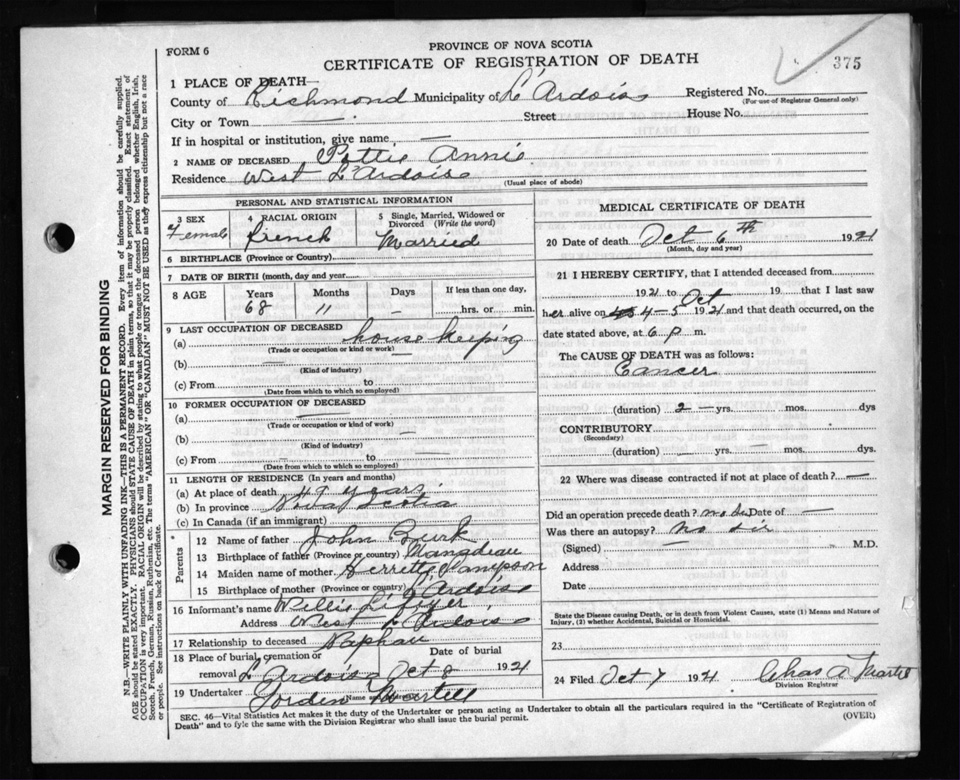 FORM 6
PROVINCE OF NOVA SCOTIA
CERTIFICATE OF REGISTRATION OF DEATH
375
1 PLACE OF DEATH
County of Richmond Municipality of L'Ardoise Registered No.
(For use of Registrar General only)
City or Town — Street House No.
If in hospital or institution, give name —
2 NAME OF DECEASED Pottie Annie
Residence West L'Ardoise
(Usual place of abode)
PERSONAL AND STATISTICAL INFORMATION
3 SEX Female
4 RACIAL ORIGIN French
5 Single, Married, Widowed or Divorced (Write the word) Married
6 BIRTHPLACE (Province or Country)
7 DATE OF BIRTH (month, day and year)
8 AGE Years 68 Months 11 Days — If less than one day, hrs. or min.
9 LAST OCCUPATION OF DECEASED
(a) house keeping
(Trade or occupation or kind or work)
(b) —
(Kind of industry)
(c) From to
(Date from which to which so employed)
10 FORMER OCCUPATION OF DECEASED
(a) —
(Trade or occupation or kind of work)
(b) —
(Kind of industry)
(c) From — to —
(Date from which to which so employed)
11 LENGTH OF RESIDENCE (In years and months)
(a) At place of death 49 years
(b) In province Nova Scotia
(c) In Canada (if an immigrant)
Parents
12 Name of father John Burk
13 Birthplace of father (Province or country)
14 Maiden name of mother Sampson
15 Birthplace of mother (Province or country) L'Ardoise
16 Informant's name Willis
Address West L'Ardoise
17 Relationship to deceased Naphau
18 Place of burial, cremation or removal L'Ardoise Date of burial Oct 8 1921
19 Undertaker Martell
(Name and Address)
MEDICAL CERTIFICATE OF DEATH
20 Date of death Oct 6th 1921
(Month, day and year)
21 I HEREBY CERTIFY, that I attended deceased from
1921 to Oct 19 that I last saw
her alive on 4-5 1921 and that death occurred, on the
date stated above, at 6 p m.
The CAUSE OF DEATH was as follows:
Cancer
(duration) 2 — yrs. mos. dys
CONTRIBUTORY —
(Secondary)
(duration) — yrs. — mos. dys
22 Where was disease contracted if not at place of death? —
Did an operation precede death? Date of —
Was there an autopsy? no sir
(Signed) — M.D.
Address
Date
State the Disease causing Death, or in death from Violent Causes, state (1) Means and Nature of
Injury, (2) whether Accidental, Suicidal or Homicidal.
23
24 Filed Oct 7 1921 Chas A Martell
Division Registrar
SEC. 46—Vital Statistics Act makes it the duty of the Undertaker or person acting as Undertaker to obtain all the particulars required in the "Certificate of Registration of
Death" and to fyle the same with the Division Registrar who shall issue the burial permit.
(OVER)
MARGIN RESERVED FOR BINDING
N.B.—WRITE PLAINLY WITH UNFADING INK—THIS IS A PERMANENT RECORD. Every item of information should be carefully supplied.
AGE should be stated EXACTLY. PHYSICIANS should STATE CAUSE OF DEATH in plain terms, so that it may be properly classified. Exact statement of
OCCUPATION is very important. RACIAL ORIGIN will be described by stating to what people or tongue the deceased person belonged whether English, Irish,
Scotch, French, German, Russian, Ruthenian, etc. The terms "AMERICAN" OR "CANADIAN" MUST NOT BE USED as they express citizenship but not a race
or people. See instructions on back of Certificate.